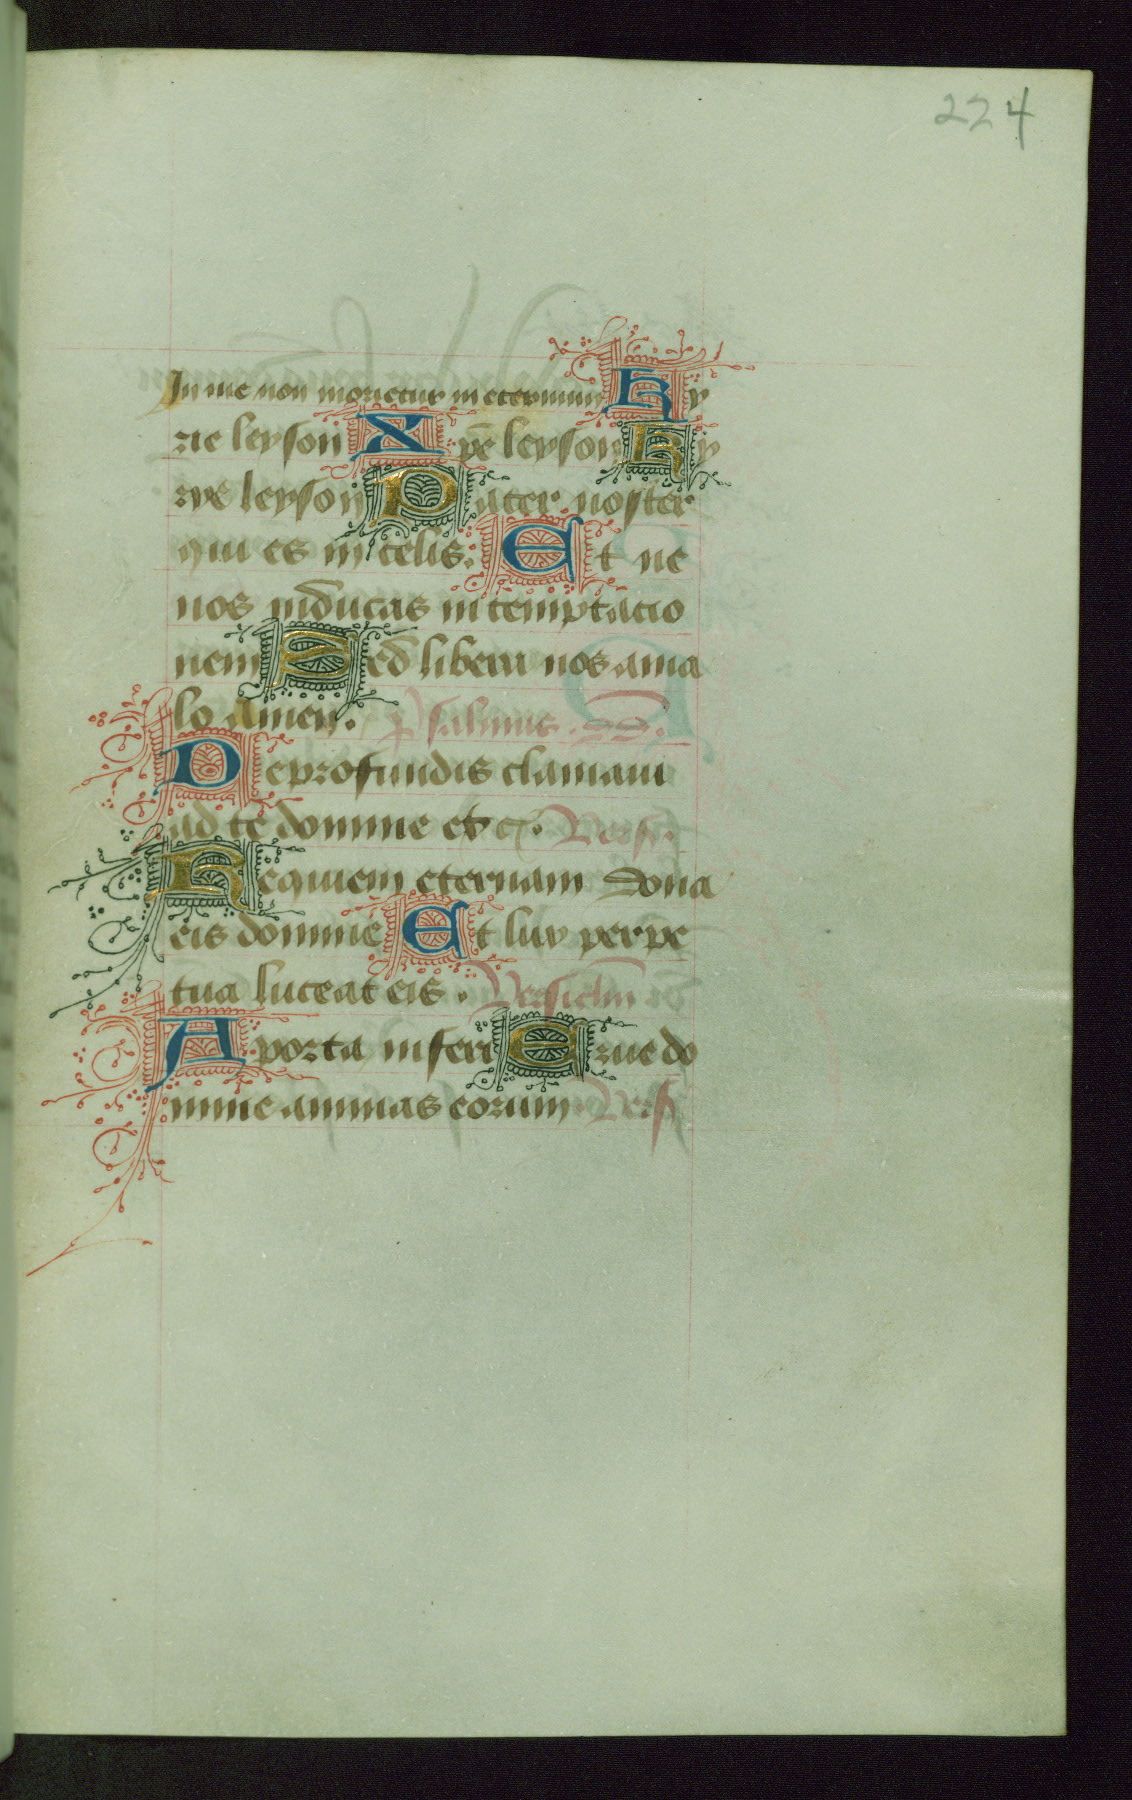 224
In me non morietur in eternum Ky
rie leyson Xpē leyson Ky
rye leyson Pater noster
qui es in celis. Et ne
nos inducas in temptacio
nem Sed libera nos a ma
lo Amen. psalmus.
De profundis clamaui
ad te domine et cͣ. Versꝰ.
Requiem eternam Dona
eis domine Et lux perpe
tua luceat eis. Versiclus
A porta inferi Erue do
mine animas eorum. Vers